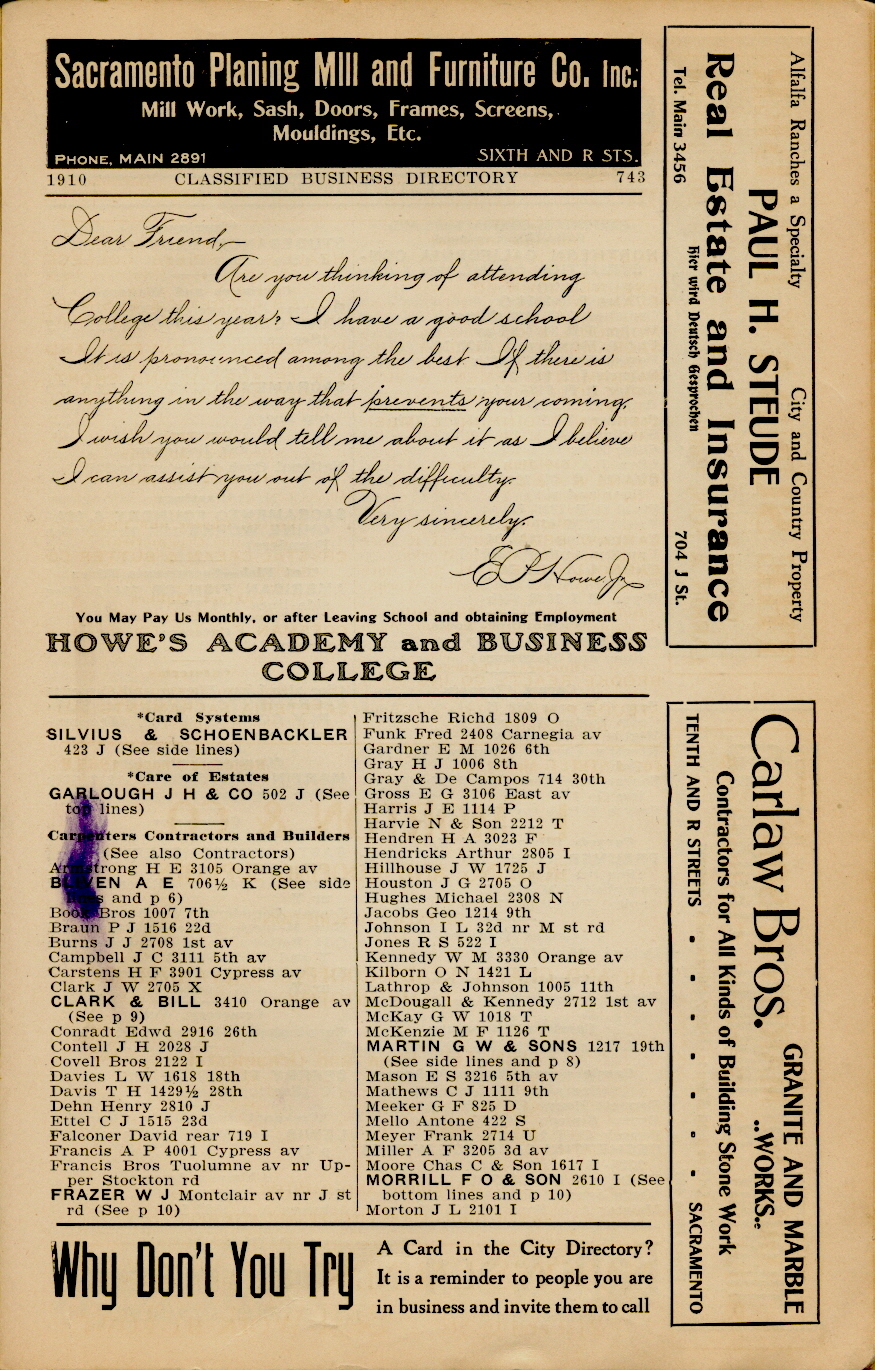 Sacramento Planing Mill and Furniture Co. Inc.
Mill Work, Sash, Doors, Frames, Screens,
Mouldings, Etc.
PHONE, MAIN 2891 SIXTH AND R STS.
1910 CLASSIFIED BUSINESS DIRECTORY 743
Dear Friend,
Are you thinking of attending
College this year? I have a good school
It is pronounced among the best If there is
anything in the way that prevents your coming,
I wish you would tell me about it as I believe
I can assist you out of the difficulty.
Very sincerely.
E P Howe Jr
You May Pay Us Monthly, or after Leaving School and obtaining Employment
HOWE'S ACADEMY and BUSINESS
COLLEGE
*Card Systems
SILVIUS & SCHOENBACKLER
423 J (See side lines)
*Care of Estates
GARLOUGH J H & CO 502 J (See
top lines)
Carpenters Contractors and Builders
(See also Contractors)
Armstrong H E 3105 Orange av
BLIVEN A E 706½ K (See side
lines and p 6)
Book Bros 1007 7th
Braun P J 1516 22d
Burns J J 2708 1st av
Campbell J C 3111 5th av
Carstens H F 3901 Cypress av
Clark J W 2705 X
CLARK & BILL 3410 Orange av
(See p 9)
Conradt Edwd 2916 26th
Contell J H 2028 J
Covell Bros 2122 I
Davies L W 1618 18th
Davis T H 1429½ 28th
Dehn Henry 2810 J
Ettel C J 1515 23d
Falconer David rear 719 I
Francis A P 4001 Cypress av
Francis Bros Tuolumne av nr Up-
per Stockton rd
FRAZER W J Montclair av nr J st
rd (See p 10)
Fritzsche Richd 1809 O
Funk Fred 2408 Carnegia av
Gardner E M 1026 6th
Gray H J 1006 8th
Gray & De Campos 714 30th
Gross E G 3106 East av
Harris J E 1114 P
Harvie N & Son 2212 T
Hendren H A 3023 F
Hendricks Arthur 2805 I
Hillhouse J W 1725 J
Houston J G 2705 O
Hughes Michael 2308 N
Jacobs Geo 1214 9th
Johnson I L 32d nr M st rd
Jones R S 522 I
Kennedy W M 3330 Orange av
Kilborn O N 1421 L
Lathrop & Johnson 1005 11th
McDougall & Kennedy 2712 1st av
McKay G W 1018 T
McKenzie M F 1126 T
MARTIN G W & SONS 1217 19th
(See side lines and p 8)
Mason E S 3216 5th av
Mathews C J 1111 9th
Meeker G F 825 D
Mello Antone 422 S
Meyer Frank 2714 U
Miller A F 3205 3d av
Moore Chas C & Son 1617 I
MORRILL F O & SON 2610 I (See
bottom lines and p 10)
Morton J L 2101 I
Why Don't You Try
A Card in the City Directory?
It is a reminder to people you are
in business and invite them to call
Alfalfa Ranches a Specialty City and Country Property
PAUL H. STEUDE
Real Estate and Insurance
Hier wird Deutsch Gesprochen
Tel. Main 3456 704 J St.
Carlaw Bros. GRANITE AND MARBLE
..WORKS..
Contractors for All Kinds of Building Stone Work
TENTH AND R STREETS . . . . . . . SACRAMENTO